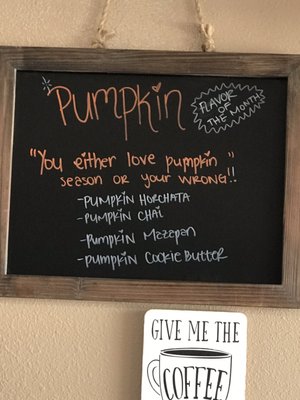 Pumpkin
FLAVOR OF
THE MONTH
"You either love pumpkin"
season or your WRONG!!
-Pumpkin Horchata
-Pumpkin Chai
-Pumpkin Mazapan
-Pumpkin Cookie Butter
GIVE ME THE
COFFEE